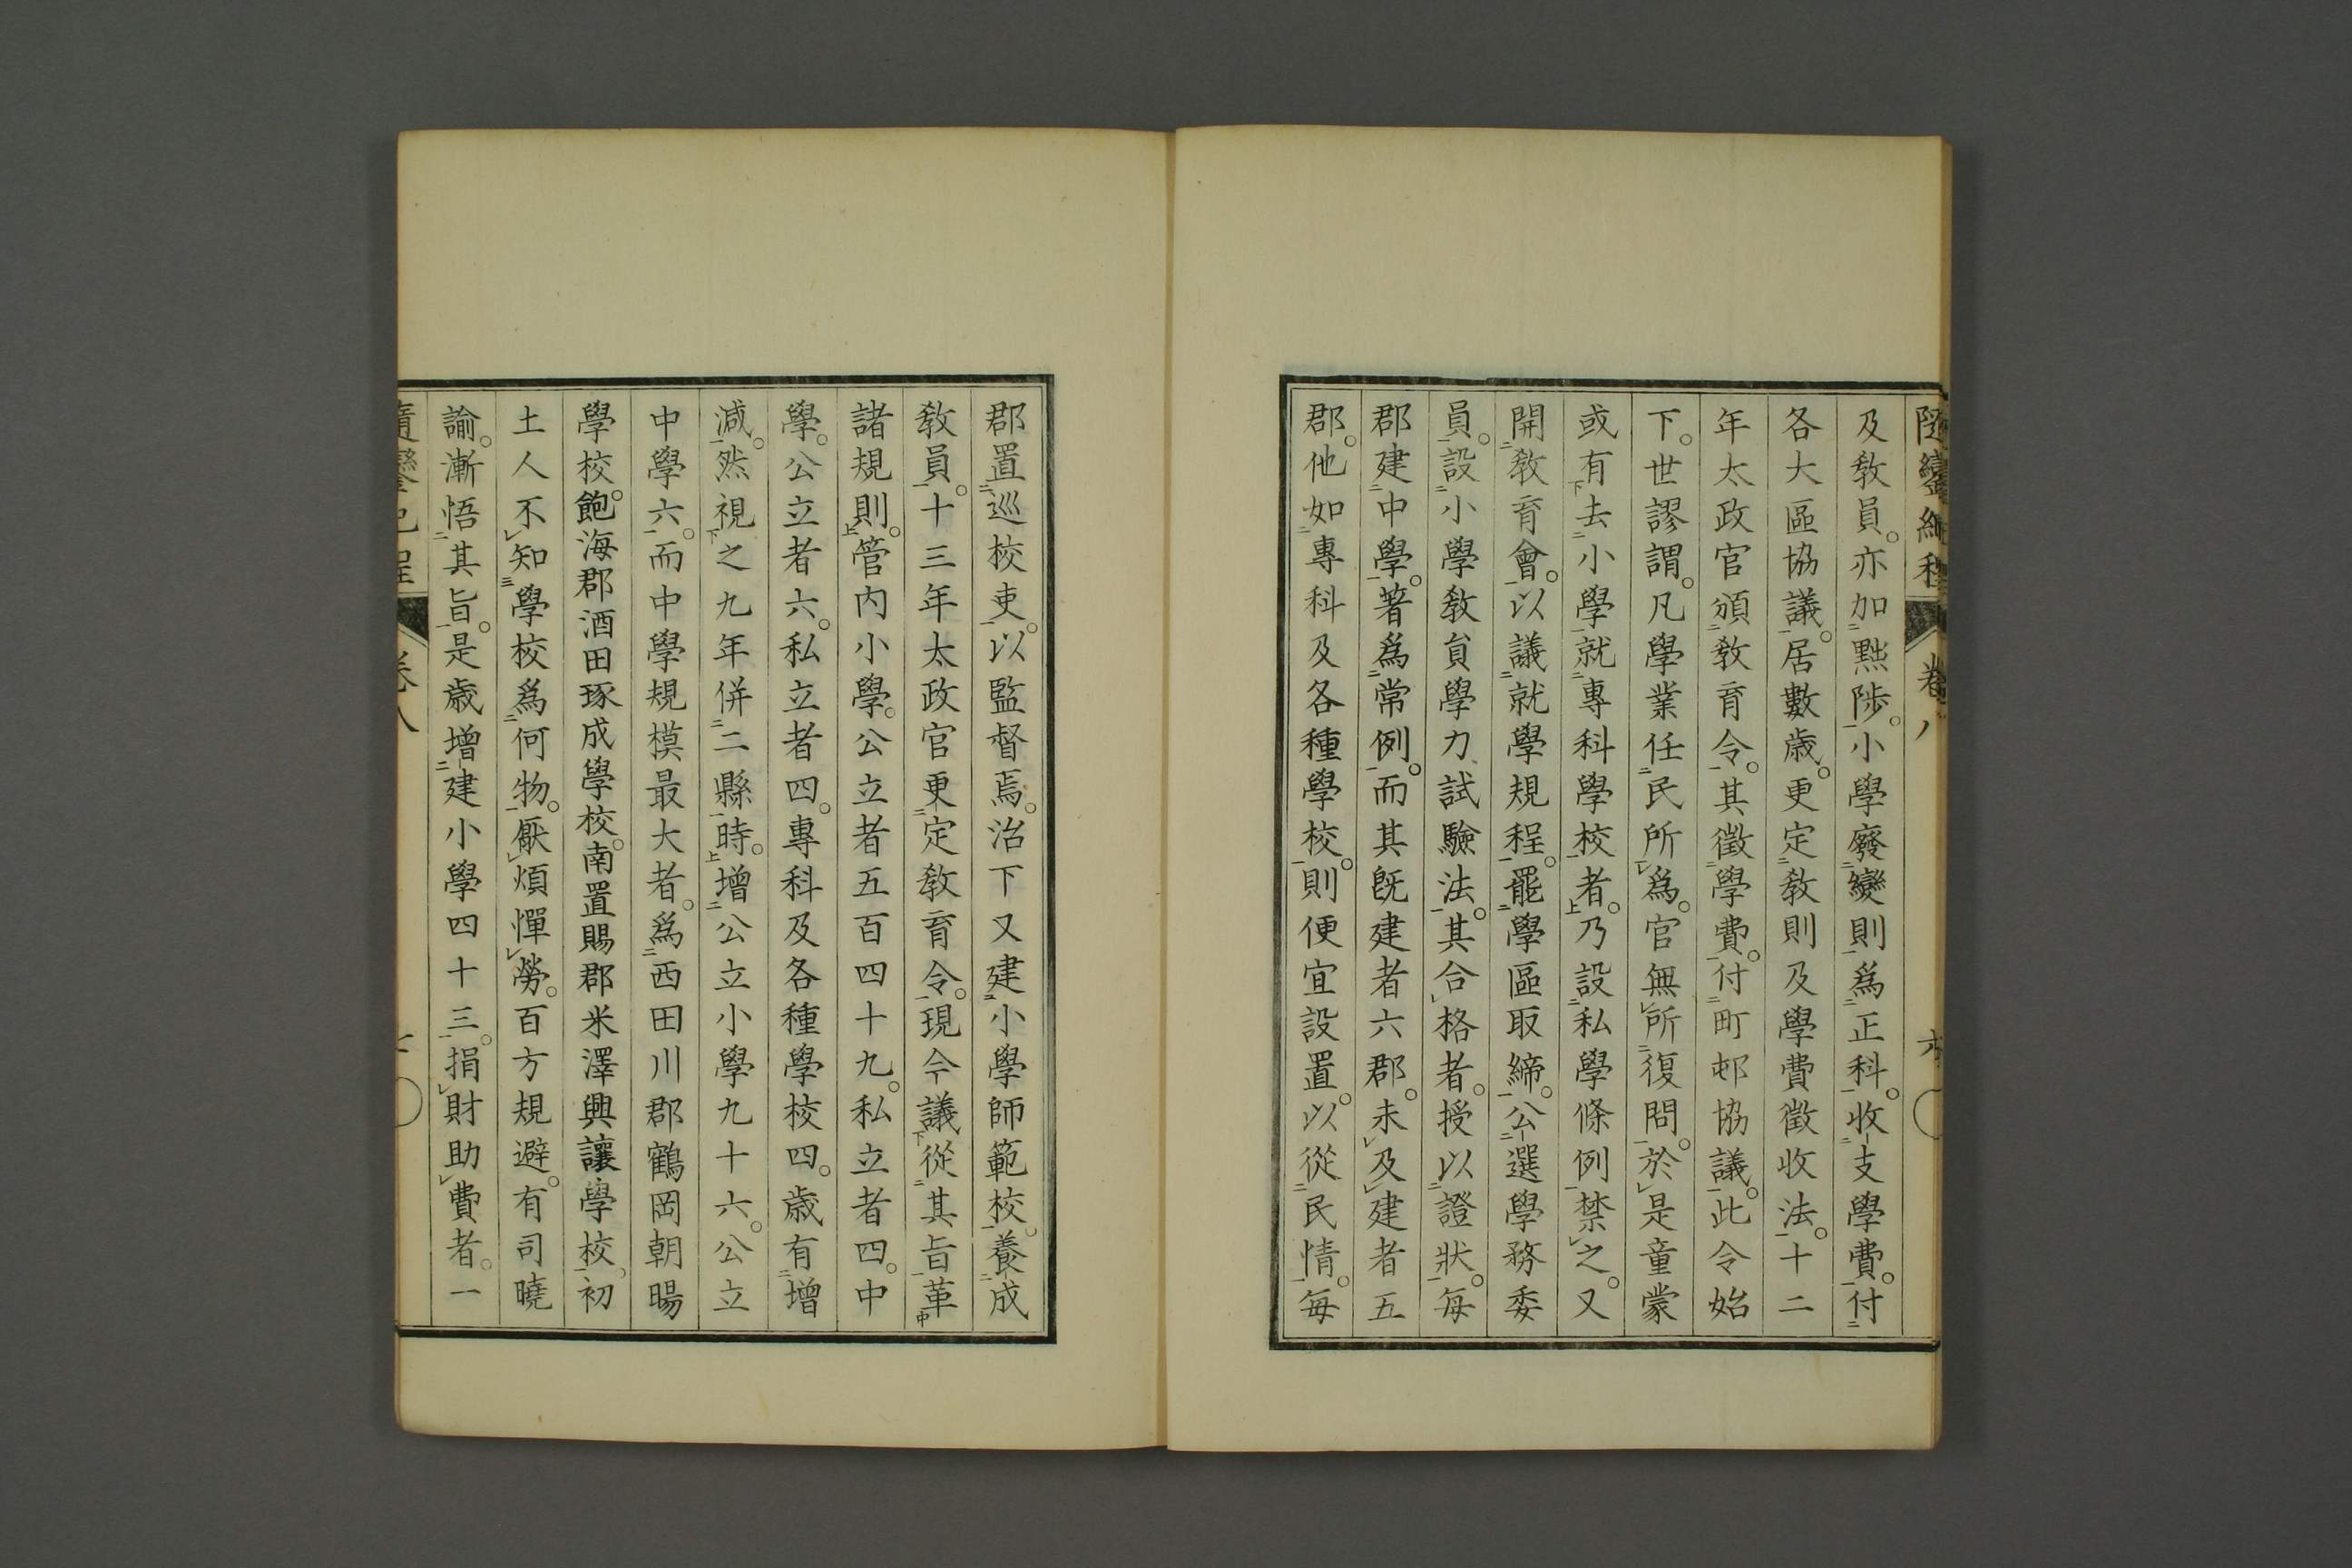 及敎員。亦加黜陟。小學廢變則爲正科。收支學費。付
各大區協議。居數歲。更定敎則及學費徵收法。十二
年太政官頒敎育令。其徵學費。付町邨協議。此令始
下。世謬謂。凡學業任民所爲。官無所復問。於是童蒙
或有去小學就專科學校者。乃設私學條例禁之。又
開敎育會。以議就學規程。罷學區取締。公選學務委
員。設小學敎員學力試驗法。其合格者。授以證狀。每
郡建中學。著爲常例。而其旣建者六郡。未及建者五
郡。他如專科及各種學校。則便宜設置。以從民情。每
郡置巡校吏。以監督焉。治下又建小學師範校。養成
敎員。十三年太政官更定敎育令。現今議從其旨革
諸規則。管内小學。公立者五百四十九。私立者四。中
學。公立者六。私立者四。專科及各種學校四。歲有增
減。然視之九年併二縣時。增公立小學九十六。公立
中學六。而中學規模最大者。爲西田川郡鶴岡朝暘
學校。飽海郡酒田琢成學校。南置賜郡米澤興讓學校。初
土人不知學校爲何物。厭煩憚勞。百方規避。有司曉
諭。漸悟其旨。是歲增建小學四十三。捐財助費者。一
卷八